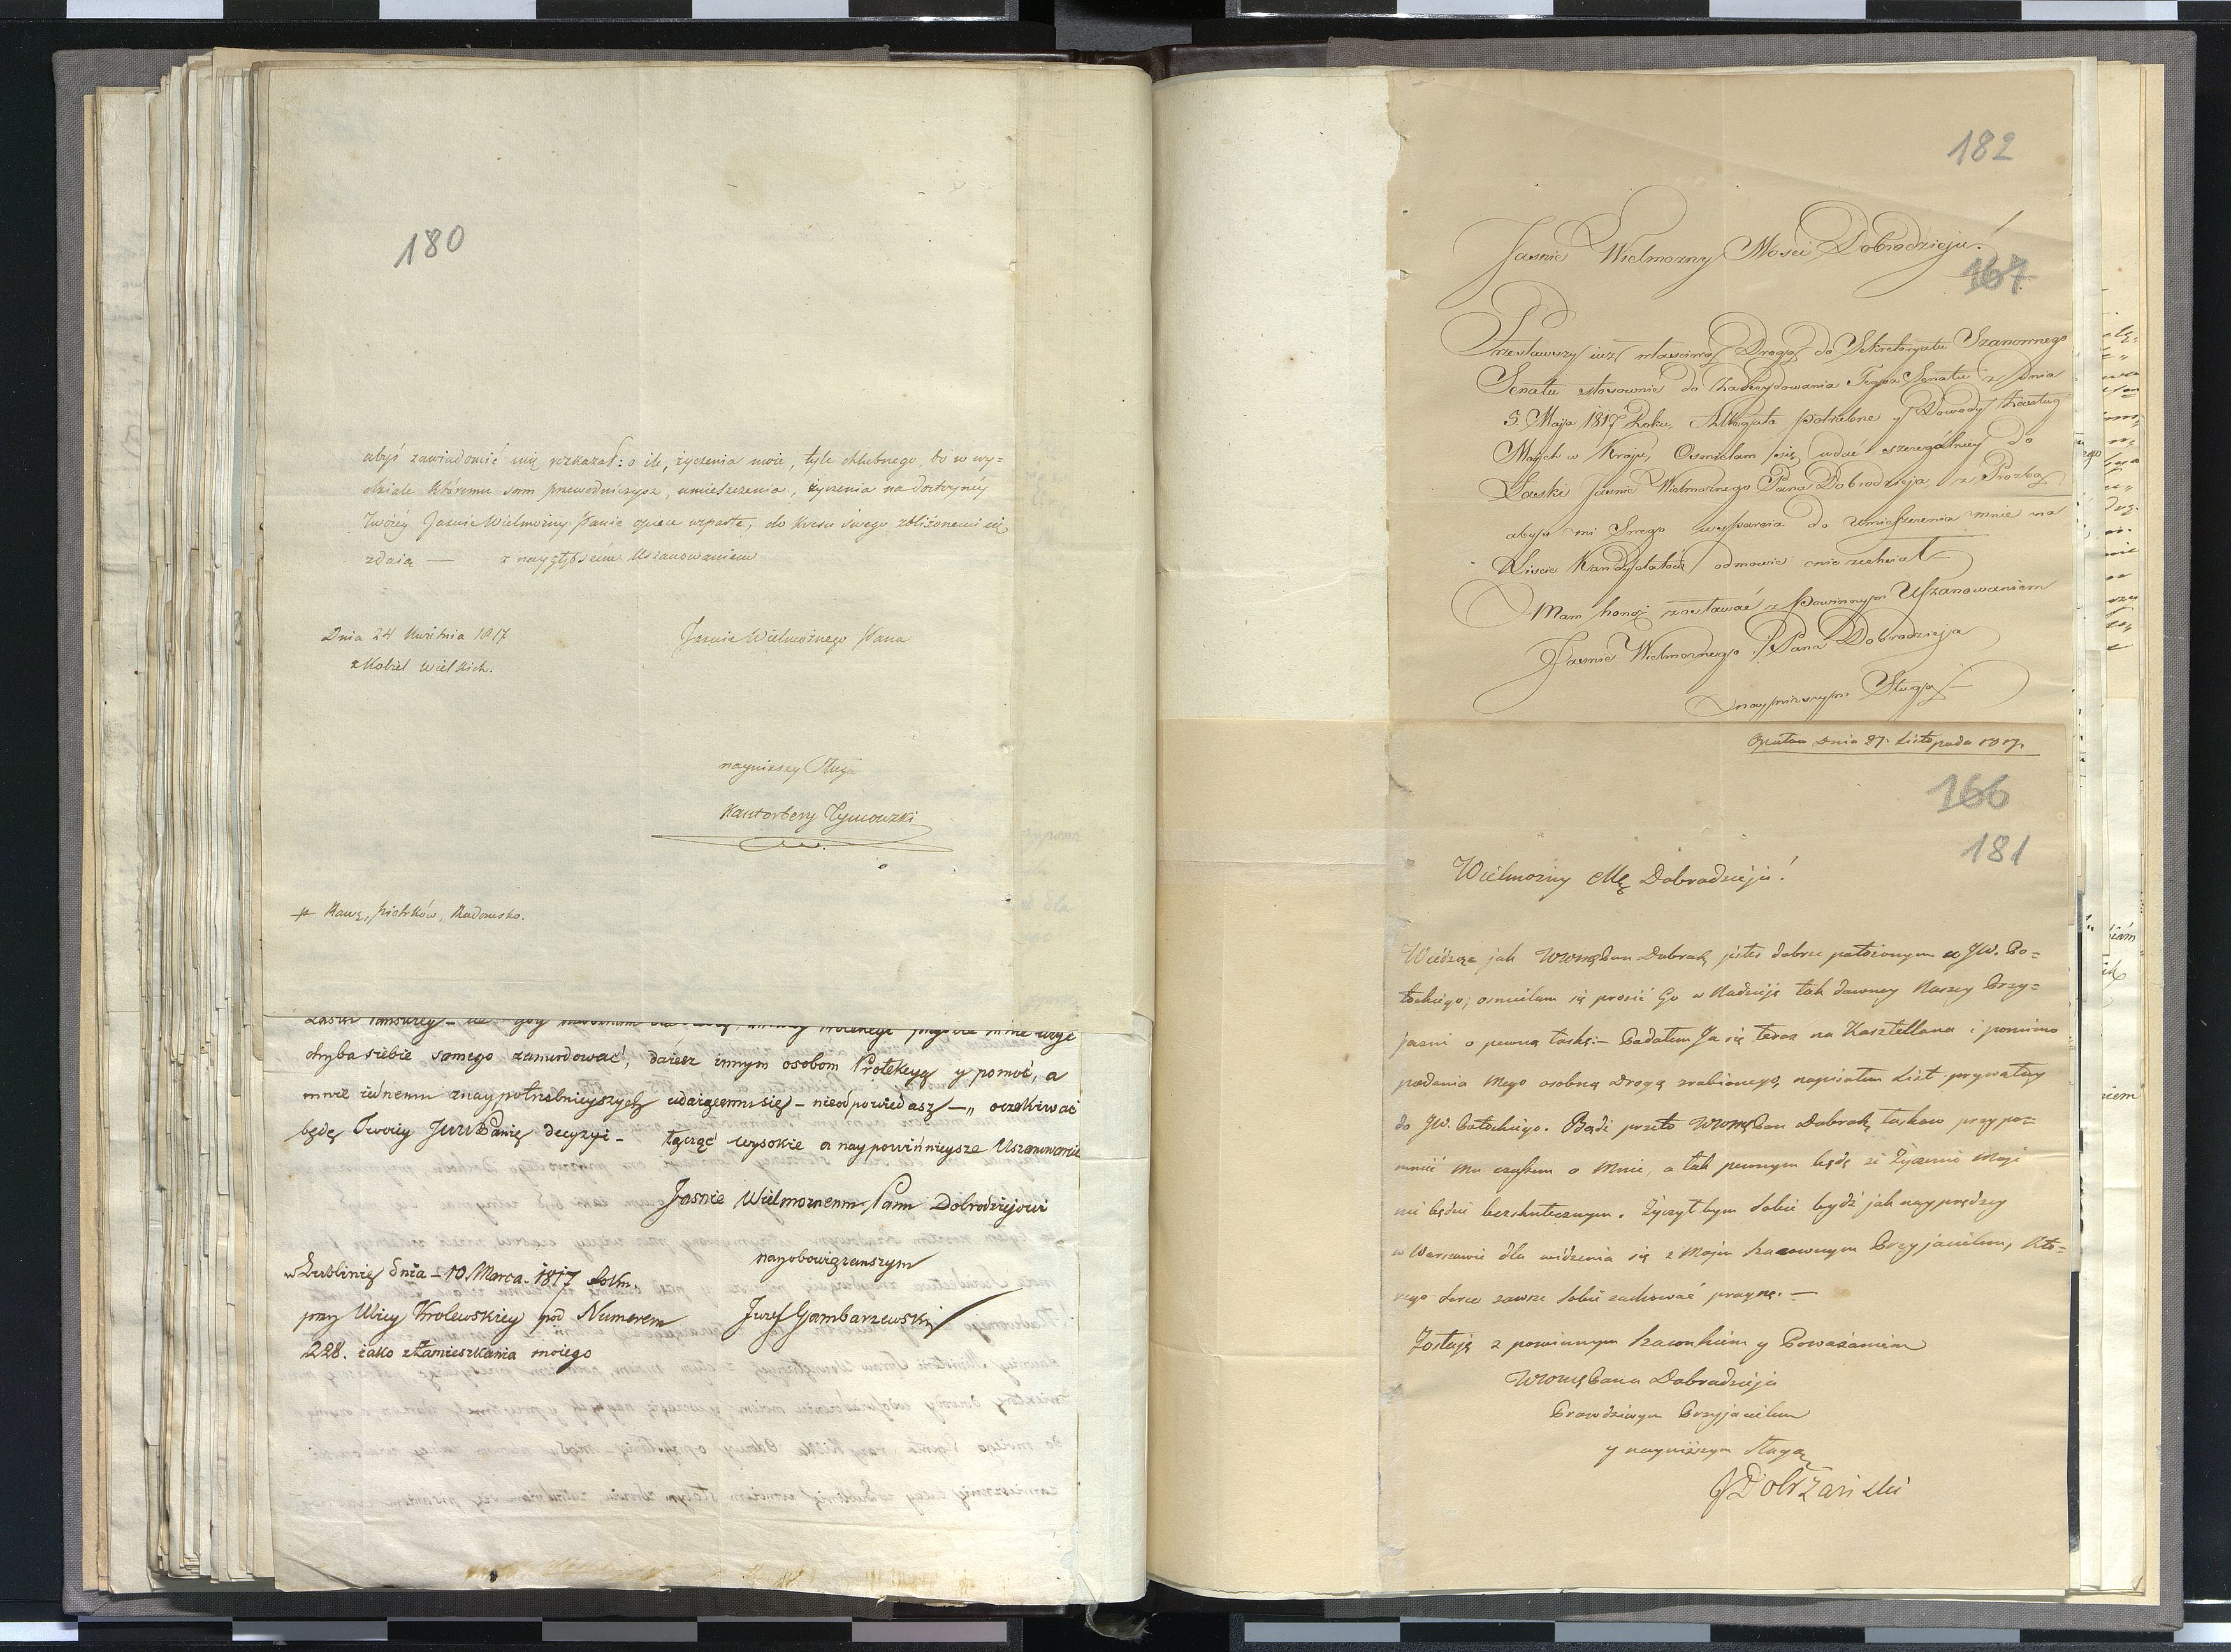 180
abyś zawiadomić mię rozkazał: o ile, życzenia moie, tyle chlubnego, bo w wy=
dziale któremu sam przewodniczysz, umieszczenia, życzenia na dostoynéy
Twoiéy Jaśnie Wielmożny Panie opiece wsparte, do kresu swego zbliżonemi się
zdaią — z naygłębszém Uszanowaniem
Dnia 24 Kwietnia 1817
z Kobiel Wielkich.
Jaśnie Wielmożnego Pana
nayniższy Sługa
Kantorbery Tymowski
Rawę, Piotrków, Radomsko.
chyba siebie samego zamordować, daiesz innym osobom Protekcyą y pomoc, a
mnie iednemu znaypotrzebnieyszych udaiącemu się – nieodpowiedasz –„ oczekiwać
będę Twoiey JWW Panie decyzyi – łącząc wysokie a naypowinnieysze Uszanowanie
Jasnie Wielmoznemu Panu Dobrodziejowi
nayobowiązanszym
w Lublinie dnia – 10 Marca. 1817
przy Ulicy Krolewskiey pod Numerem
228. iako zZamieszkania moiego
Jozef Gambarzewski
182
Jasnie Wielmozny Mosci Dobrodzieju!
167
Przesławszy iuz własciwą Drogą do Sekretaryatu Szanownego
Senatu stosownie do Zadecydowania Tegoz Senatu z Dnia
5. Maja 1817 Roku, Allegata potrzebne y Dowody Zasług
Moych w Kraju, Osmielam się udać szczegulniey do
Łaski Jasnie Wielmoznego Pana Dobrodzieja, z Prozbą
abys mi Swego wsparcia do Umieszczenia mnie na
Liscie Kandydatow odmowic nie zechciał
Mam honor zostawać z Powinnym Uszanowaniem
Jasnie Wielmoznego Pana Dobrodzieja
nayniższym Sługą
Opatow Dnia 27. Listopada 1817
166
181
Wielmożny Mę Dobrodzieju!
Wiedząc jak WWMęPan Dobrodź jesteś dobrze położonym u JW. Po=
tockiego; osmielam się prosić Go w Nadzieję tak dawney Naszey Przy=
jazni o pewną łaskę:– Podałem Ja się teraz na Kasztellana i pomimo
podania Mego osobną Drogą zrobionego, napisałem List prywatny
do JW. Potockiego. Bądź przeto WWMęPan Dobrodź łaskaw przypo=
mnić Mu czasem o Mnie, a tak pewnym będę że Życzenie Moje
nie będzie bezskutecznym. Życzył bym Sobie bydź jak nayprędzey
w Warszawie dla widzenia się z Moim Szacownym Przyjacielem, Któ=
rego Serce zawsze Sobie zachować pragnę. —
Zostaję z powinnym Szacunkiem y Poważaniem
WWMęPana Dobrodzieja
Prawdziwym Przyjacielem
y nayniższym Sługą
J Dobrzański